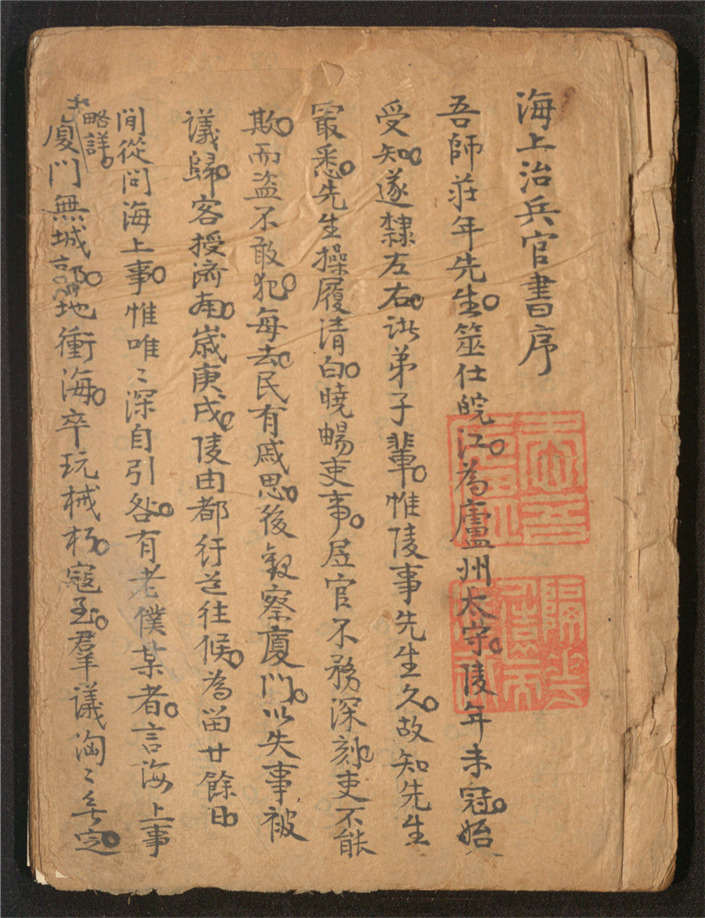 海上治兵官書序
吾師莊年先生。筮仕皖江。為廬州太守。陵年未冠。始
受知。遂隸左右。諸弟子輩。惟陵事先生久。故知先生
最悉。先生操履清白。曉暢吏事。居官不務深刻。吏不能
欺。而盜不敢犯。每去。民有戚思。後觀察廈門。以失事被
議歸。客授濟南。歲庚戌。陵由都行芝往候。為畱廿餘日
間從問海上事。惟唯〻深自引咎。有老僕某者。言海上事
略詳。
廈門無城郭。地衝海。卒玩械朽。寇至。羣議洶〻無定。